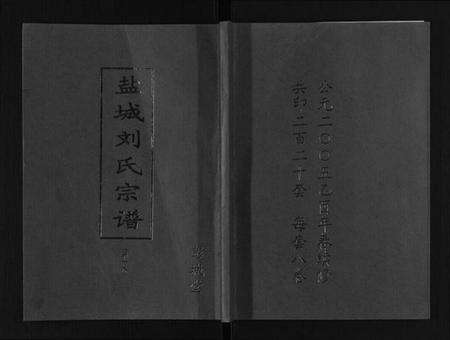 公元二〇〇五乙酉年春续修
共印二百二十套 每套八卷
盐城刘氏宗谱
彭城堂